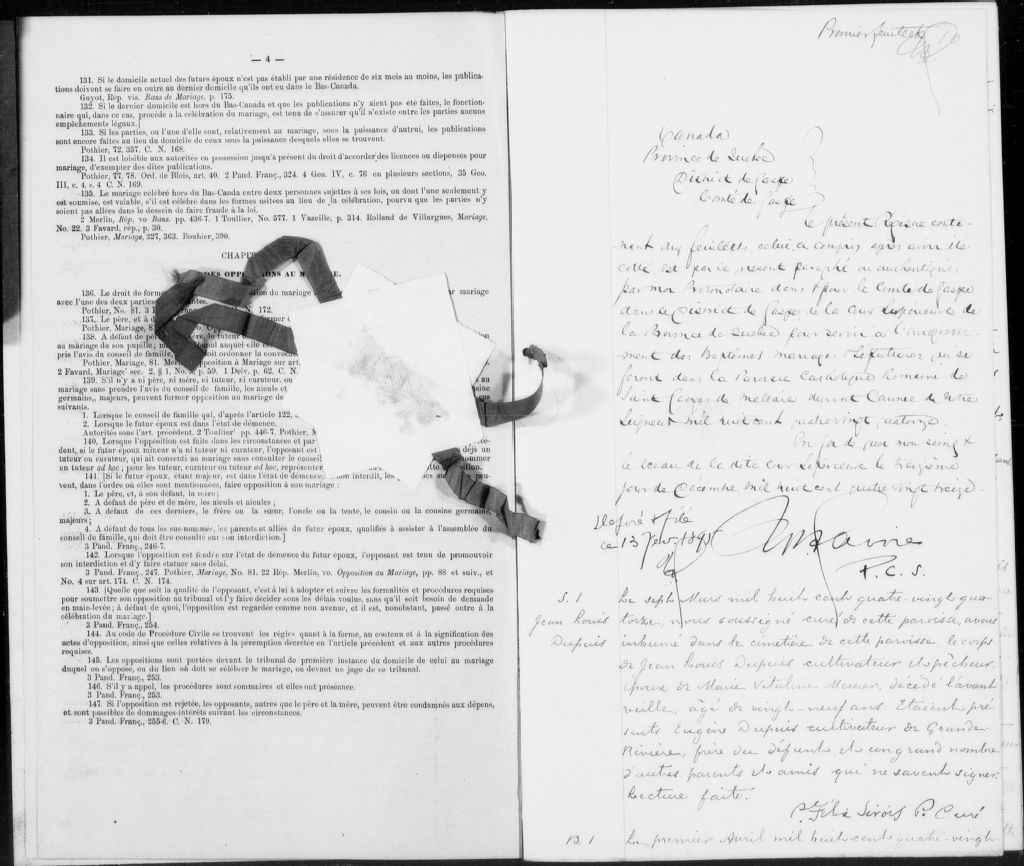 — 4 —
131. Si le domicile actuel des futurs époux n'est pas établi par une résidence de six mois au moins, les publica-
tions doivent se faire en outre au dernier domicile qu'ils ont eu dans le Bas-Canada.
Guyot, Rép. vis. Bans de Mariage, p. 175.
132. Si le dernier domicile est hors du Bas-Canada et que les publications n'y aient pas été faites, le fonction-
naire qui, dans ce cas, procède à la célébration du mariage, est tenu de s'assurer qu'il n'existe entre les parties aucuns
empêchements légaux.]
133. Si les parties, ou l'une d'elle sont, relativement au mariage, sous la puissance d'autrui, les publications
sont encore faites au lieu du domicile de ceux sous la puissance desquels elles se trouvent.
Pothier, 72, 357. C. N. 168.
134. Il est loisible aux autorités en possession jusqu'à présent du droit d'accorder des licences ou dispenses pour
mariage, d'exempter des dites publications.
Pothier, 77, 78. Ord. de Blois, art. 40. 2 Pand. Franç., 324. 4 Geo. IV, c. 76 en plusieurs sections, 35 Geo.
III, c. 4, s. 4 C. N. 169.
135. Le mariage célébré hors du Bas-Canda entre deux personnes sujettes à ses lois, ou dont l'une seulement y
est soumise, est valable, s'il est célébré dans les formes usitées au lieu de la célébration, pourvu que les parties n'y
soient pas allées dans le dessein de faire fraude à la loi.
2 Merlin, Rép, vo Bans. pp. 436-7. 1 Toullier, No. 577. 1 Vazeille, p. 314. Rolland de Villargues, Mariage,
No. 22. 3 Favard, rép., p. 30.
Pothier, Mariage, 327, 363. Bouhier, 390.
CHAPIT
DES OPPO IONS AU M E.
136. Le droit de forme ion du mariage r mariage
avec l'une des deux parties antes.
Pothier, No. 81. 3 N. 172.
137. Le père, et à d former
Pothier, Mariage, 8
138. A défaut de pè re, le tuteur
au mariage de son pupille; m bunal auquel elle
pris l'avis du conseil de famille, oit ordonner la convoca
Pothier, Mariage, 81. Mer pposition à Mariage sur art.
2 Favard, Mariage sec. 2. § 1, No. 3, p. 59. 1 Delv. p. 62. C. N.
139. S'il n'y a ni père, ni mère, ni tuteur, ni curateur, ou au
mariage sans prendre l'avis du conseil de famille, les aïeuls et
germains,, majeurs, peuvent former opposition au mariage de cas
suivants.
1. Lorsque le conseil de famille qui, d'après l'article 122,
2. Lorsque le futur époux est dans l'état de démence.
Autorités sous l'art. précédent. 2 Toullier pp. 446-7. Pothier, M
140. Lorsque l'opposition est faite dans les circonstances et par dent,
ent, si le futur époux mineur n'a ni tuteur ni curateur, l'opposant est déjà un
tuteur ou curateur, qui ait consenti au mariage sans consulter le conseil ommer
un tuteur ad hoc ; pour les tuteur, curateur ou tuteur ad hoc, représenter
141. [Si le futur époux, étant majeur, est dans l'état de démence, non interdit, les peu-
vent, dans l'ordre où elles sont mentionnées, faire opposition à son mariage :
1. Le père, et, à son défaut, la mère ;
2. A défaut de père et de mère, les aïeuls et aïeules ;
3. A défaut de ces derniers, le frère ou la sœur, l'oncle ou la tente, le cousin ou la cousine germains,
majeurs ;
4. A défaut de tous les sus-nommés, les parents et alliés du futur époux, qualifiés à assister à l'assemblée du
conseil de famille, qui doit être consulté sur son interdiction.]
3 Pand. Franç., 246-7.
142. Lorsque l'opposition est fondée sur l'état de démence du futur époux, l'opposant est tenu de promouvoir
son interdiction et d'y faire statuer sans délai.
3 Pand. Franç., 247. Pothier, Mariage, No. 81. 22 Rép. Merlin, vo. Opposition au Mariage, pp. 88 et suiv., et
No. 4 sur art. 174. C. N. 174.
143. [Quelle que soit la qualité de l'opposant, c'est à lui à adopter et suivre les formalités et procédures requises
pour soumettre son opposition au tribunal et l'y faire décider sous les délais voulus, sans qu'il soit besoin de demande
en main-levée ; à défaut de quoi, l'opposition est regardée comme non avenue, et il est, nonobstant, passé outre à la
célébration du mariage.]
3 Pand. Franç., 254.
144. Au code de Procédure Civile se trouvent les règles quant à la forme, au contenu et à la signification des
actes d'opposition, ainsi que celles relatives à la péremption decrétée en l'article précédent et aux autres procédures
requises.
145. Les oppositions sont portées devant le tribunal de première instance du domicile de celui au mariage
duquel on s'oppose, ou du lieu où doit se célébrer le mariage, ou devant un juge de ce tribunal.
3 Pand. Franç., 253.
146. S'il y a appel, les procédures sont sommaires et elles ont préséance.
3 Pand. Franç., 253.
147. Si l'opposition est rejetée, les opposants, autres que le père et la mère, peuvent être condamnés aux dépens,
et sont passibles de dommages-intérêts suivant les circonstances.
3 Pand. Franç., 255-6. C. N. 179.
Premier feuillet
Canada
Province de Québec
District de Gaspé
Comté de Gaspé
Le présent Registre conte-
nant dix feuillets celui ci compris après avoir été
coté, est par le présent paraphé ou authentiqué
par moi Protonotaire dans & pour le Comté de Gaspé
dans le District de Gaspé de la Cour Supérieure de
la Province de Québec pour servir à l'enregistre-
ment des Baptêmes mariages & sépultures qui se
feront dans la Paroisse Catholique Romaine de
Saint Georges de Malbaie durant l'année de Notre
Seigneur mil huit cent quatre vingt quatorze.
En foi de quoi mon seing &
le sceau de la dite cour supérieure le treizième
jour de Décembre mil huit cent quatre vingt treize.
Déposé & filé
ce 13 Fevr. 1895
P. C. S.
S. 1
Jean Louis
Dupuis
Le sept Mars mil huit cent quatre-vingt qua-
torze, nous soussigné curé de cette paroisse, avons
inhumé dans le cimetière de cette paroisse, le corps
de Jean Louis Dupuis cultivateur et pêcheur,
époux de Marie Vitaline Mercier, décédé l'avant
veille, âgé de vingt-neuf ans. Etaient pré-
sents Eugène Dupuis cultivateur de Grande
Rivière, frère du défunt, et un grand nombre
d'autres parents et amis qui ne savent signer.
Lecture faite.
P. Félix Sirois Ptr. Curé
B. 1
Le premier Avril mil huit cent quatre-vingt-